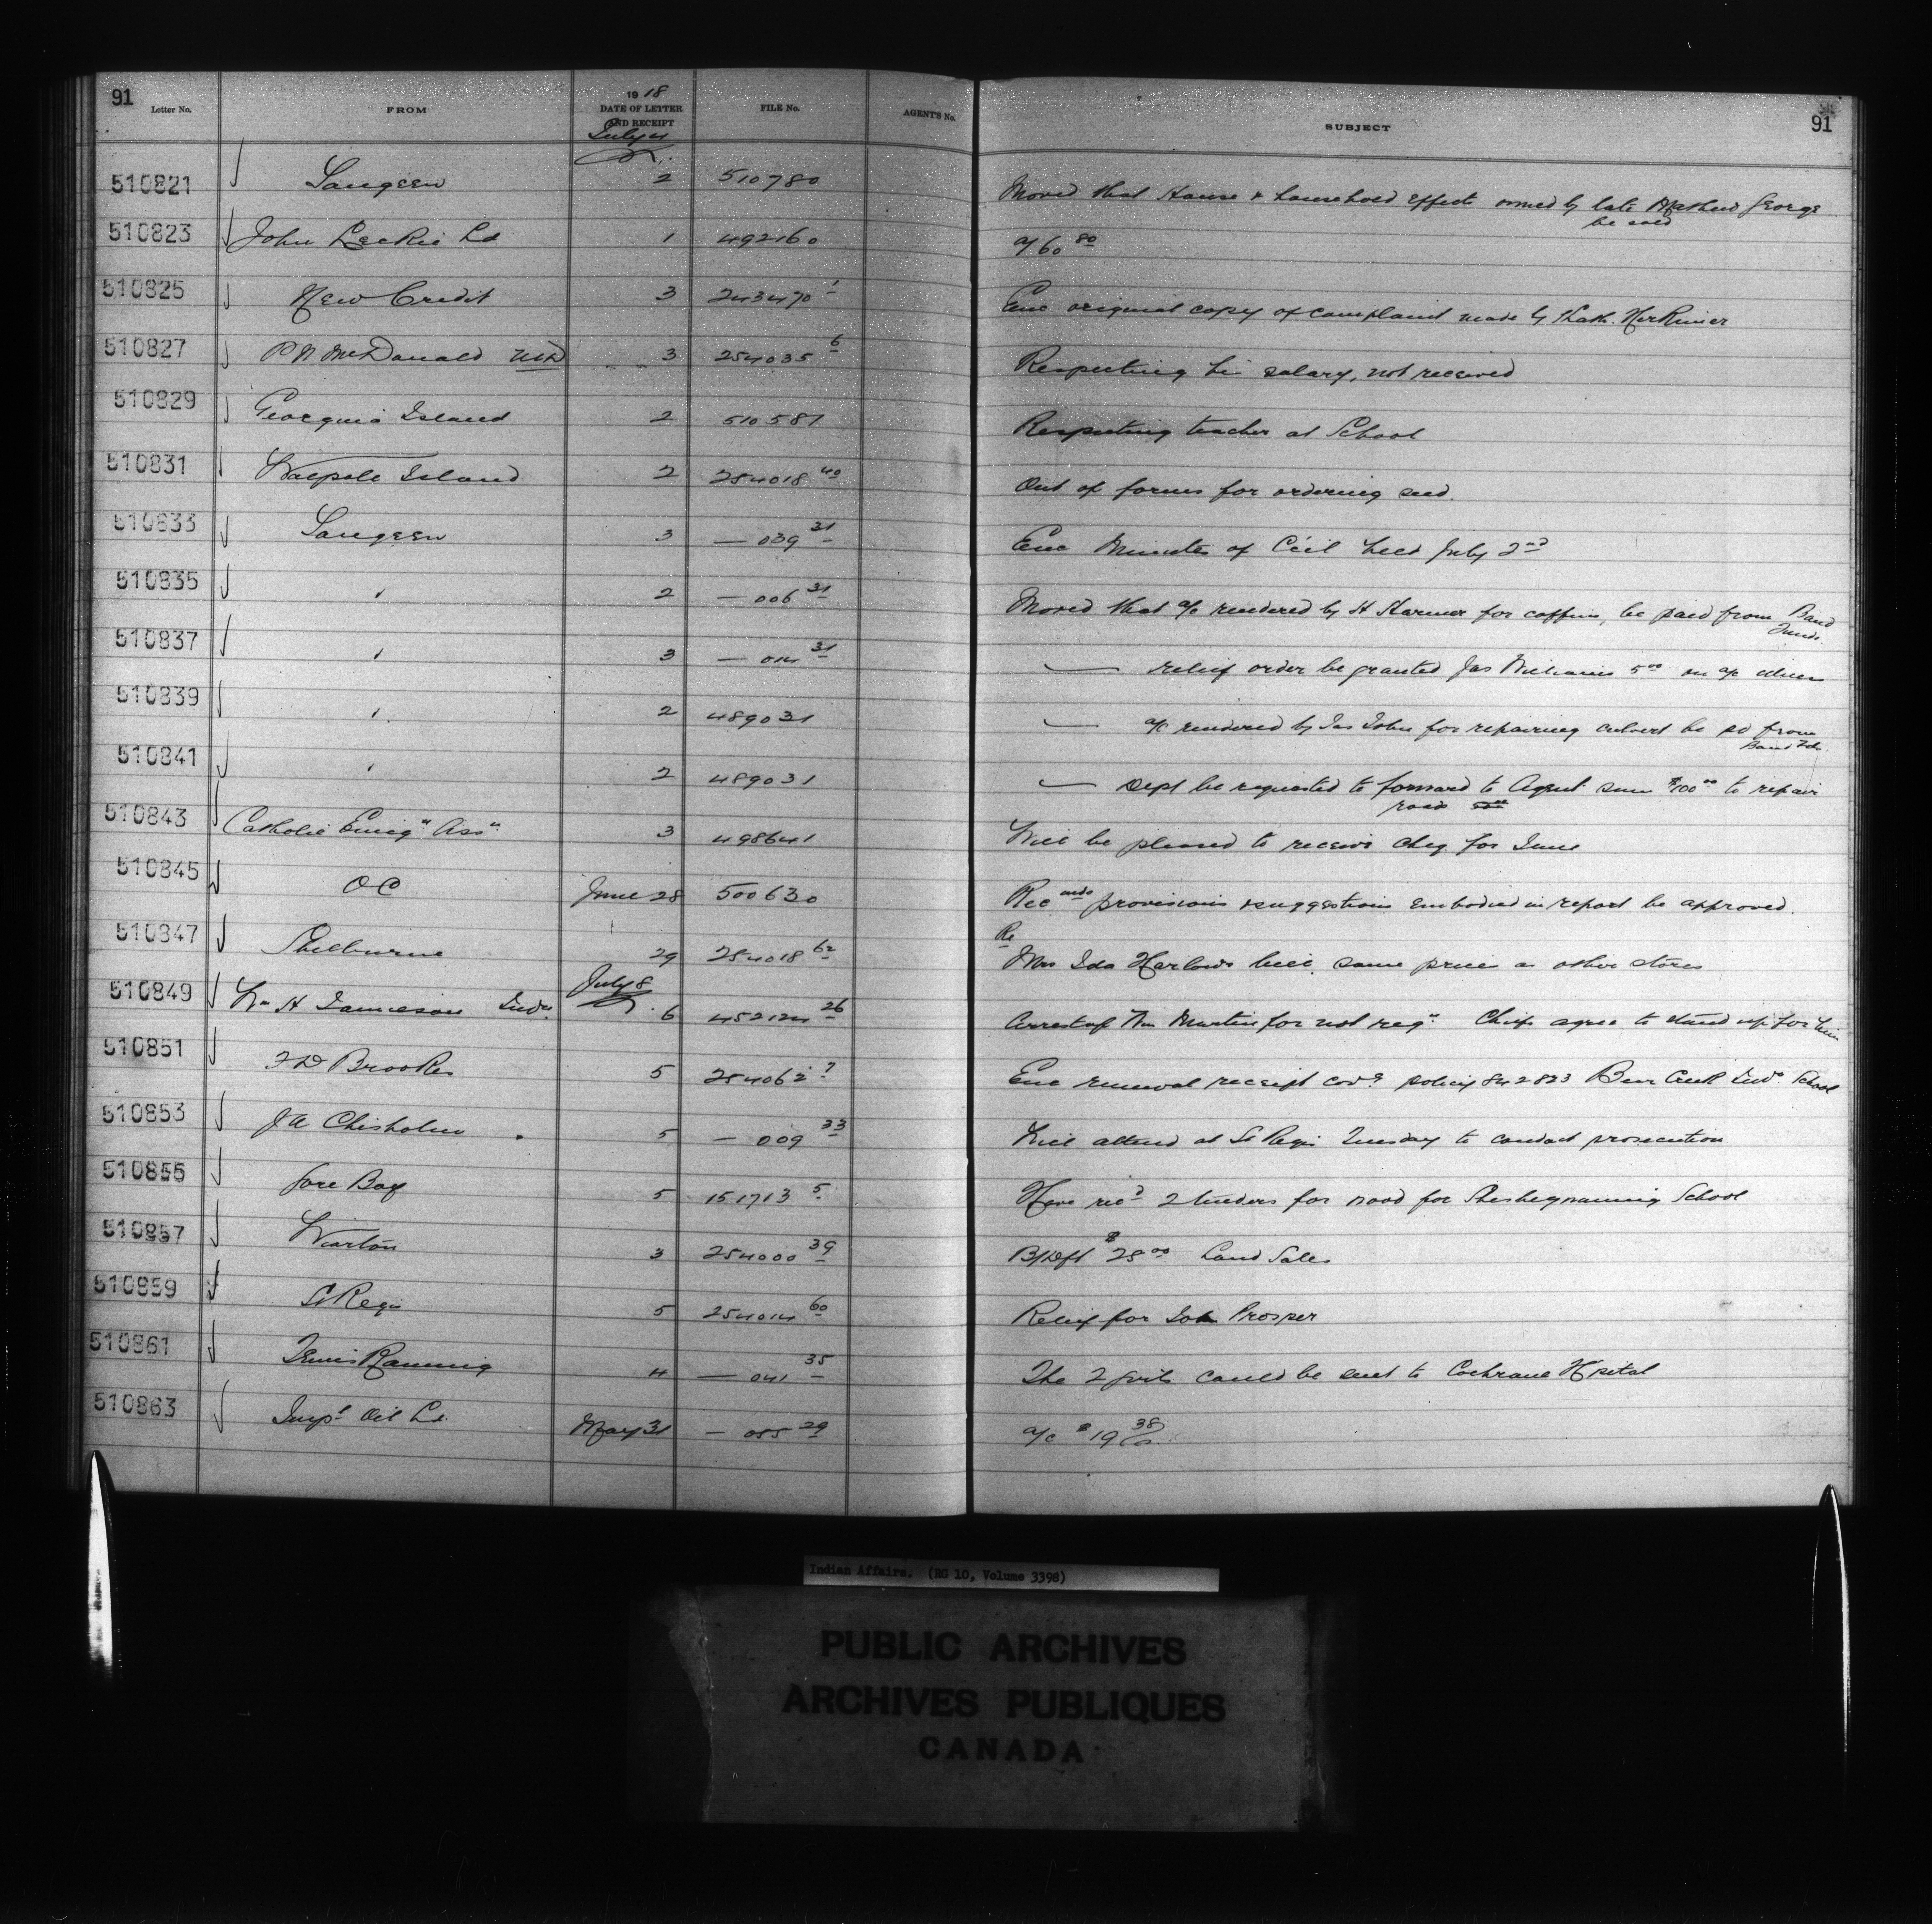 91 Letter No. FROM 1918 DATE OF LETTER AND RECEIPT FILE No. AGENT'S No. SUBJECT 91
July 4
510821 Saugeen 2 510780 Moved that House & household effects owned by late Mathew George
be sold
510823 John Leckie Ld 1 492160 a/ 60 80
510825 New Credit 3 243470 1 Enc original copy of complaint made by
510827 P N McDonald MD 3 254035 6 Respecting his salary, not received
510829 Georgina Island 2 510581 Respecting teacher at School
510831 Walpole Island 2 254018 40 Out of forms for ordering seed.
510833 Saugeen 3 — 039 31 Enc Minutes of Ccil held July 2nd
510835 " 2 — 006 31 Moved that a/c rendered by H Harmer for coffin, be paid from Band
Funds.
510837 " 3 — 014 31 — relief order be granted Jas Williams 5 00 on a/c
510839 " 2 489031 — a/c rendered by Jas John for repairing culvert be pd from
Band Fds.
510841 " 2 489031 — Dept be requested to forward to Agent sum $100 00 to repair
road
510843 Catholic Emign Assn 3 498641 Will be pleased to receive cheq. for June
510845 O C June 28 500630 Recmds provisions & suggestions embodied in report be approved.
Re
510847 Shelburne 29 254018 62 Mrs Ida Harlow's bill, same price as other stores
July 8
510849 Wm H Jamieson Indn. 6 452124 26 Arrest of Wm Martin for not regn. Chiefs agree to stand up for him
510851 F D Brookes 5 254062 7 Enc renewal receipt covg policy 842823 Bear Creek Indn School
510853 J A Chisholm 5 — 009 33 Will attend at St Regis Tuesday to conduct prosecution
510855 Gore Bay 5 151713 5 Have recd 2 tenders for wood for Sheshegwaning School
510857 Wiarton 3 254000 39 B/Dft $28 00 Land Sales
510859 St Regis 5 254014 60 Relief for Prosper
510861 4 — 041 35 The 2 girls could be sent to Cochrane Hspital
510863 Impl Oil Ld. May 31 — 055 29 a/c $19 38
Indian Affairs. (RG 10, Volume 3398)
PUBLIC ARCHIVES
ARCHIVES PUBLIQUES
CANADA